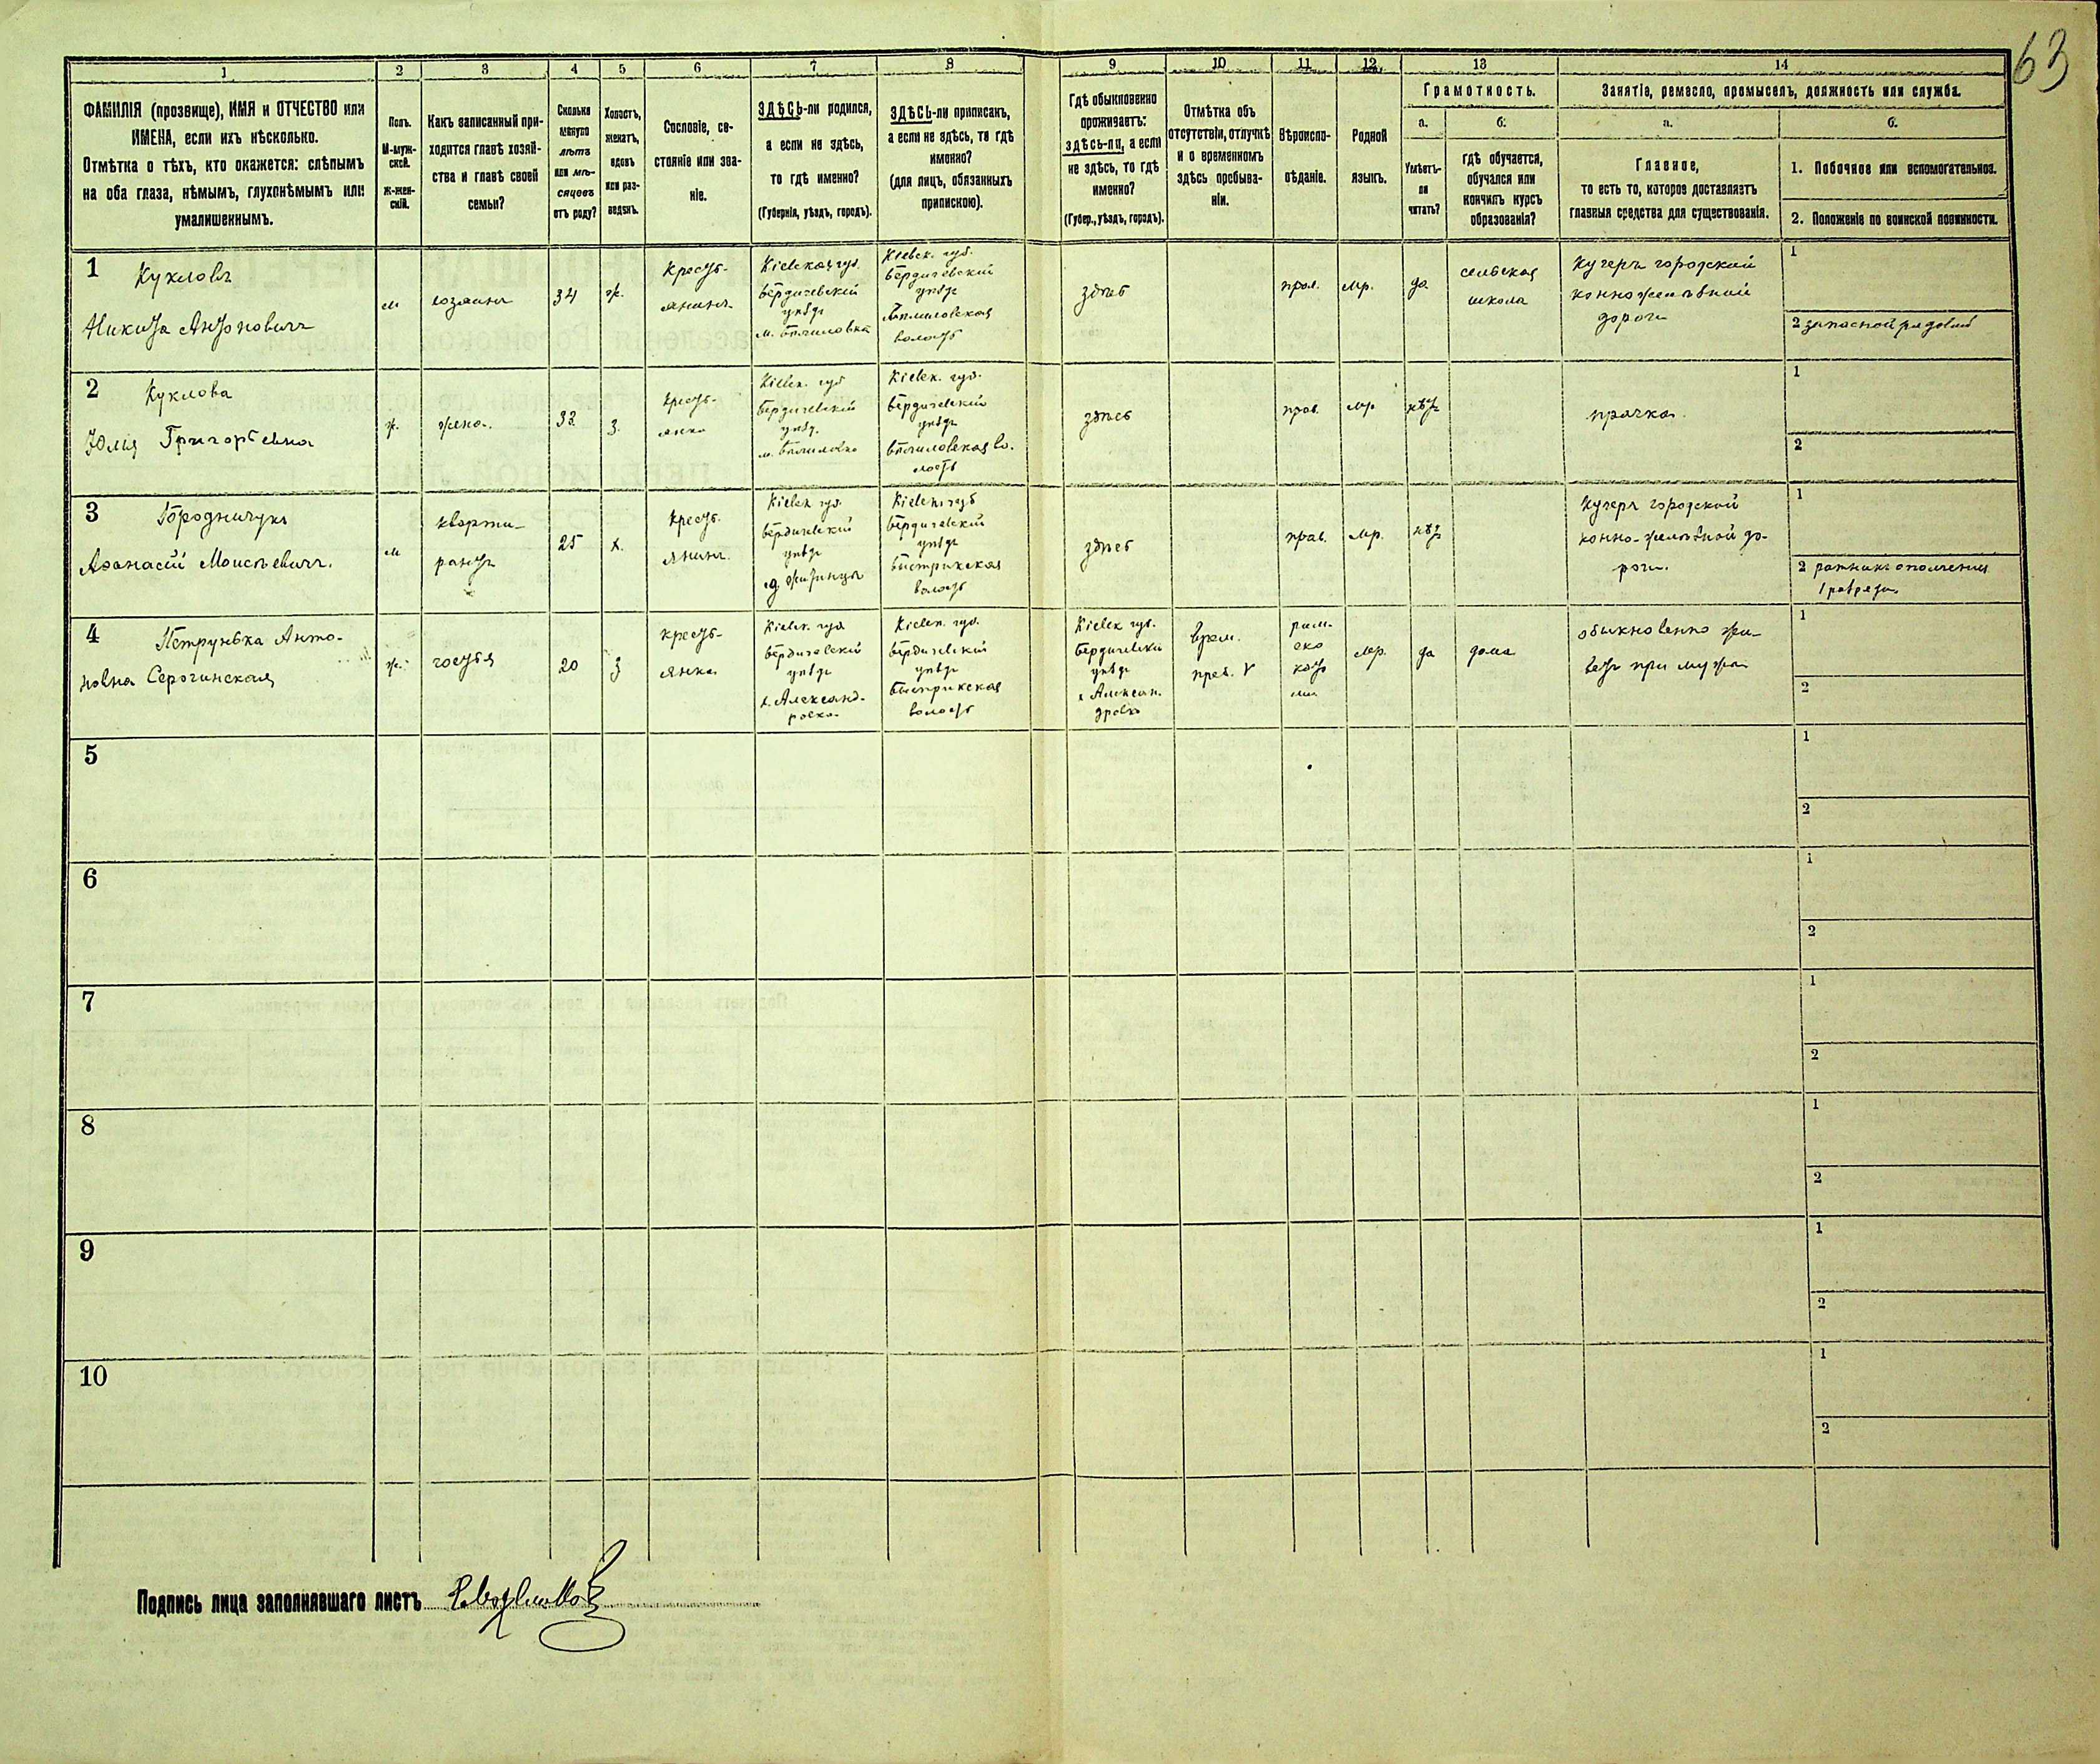 63
1 2 3 4 5 6 7 8 9 10 11 12 13 14
ФАМИЛІЯ (прозвище), ИМЯ и ОТЧЕСТВО или
ИМЕНА, если ихъ нѣсколько.
Отмѣтка о тѣхъ, кто окажется: слѣпымъ
на оба глаза, нѣмымъ, глухонѣмымъ или
умалишеннымъ.
Полъ.
М-муж-
ской.
Ж-жен-
скій.
Какъ записанный при-
ходится главѣ хозяй-
ства и главѣ своей
семьи?
Сколько
минуло
лѣтъ
или мѣ-
сяцевъ
отъ роду?
Холостъ,
женатъ,
вдовъ
или раз-
веденъ.
Сословіе, со-
стояніе или зва-
ніе.
ЗДѢСЬ-ли родился,
а если не здѣсь,
то гдѣ именно?
(Губернія, уѣздъ, городъ).
ЗДѢСЬ-ли приписанъ,
а если не здѣсь, то гдѣ
именно?
(для лицъ, обязанныхъ
припискою).
Гдѣ обыкновенно
проживаетъ:
здѣсь-ли, а если
не здѣсь, то гдѣ
именно?
(Губер., уѣздъ, городъ).
Отмѣтка объ
отсутствіи, отлучкѣ
и о временномъ
здѣсь пребыва-
ніи.
Вѣроиспо-
вѣданіе.
Родной
языкъ.
Грамотность.
а.
Умѣетъ-
ли
читать?
б.
гдѣ обучается,
обучался или
кончилъ курсъ
образованія?
Занятіе, ремесло, промыселъ, должность или служба.
а.
Главное,
то есть то, которое доставляетъ
главныя средства для существованія.
б.
1. Побочное или вспомогательное.
2. Положеніе по воинской повинности.
1 Кукловъ
Никита Антоновичъ
м
хозяинъ
34
ж.
Кресть-
янинъ
Кіевская губ.
Бердичевскій
уѣздъ
м. Бѣлиловка
Кіевск. губ.
Бердичевскій
уѣздъ
Бѣлиловская
волость
здѣсь
прав.
мр.
да
сельская
школа
Кучеръ городской
конножелѣзной
дороги
1
2 запасной рядовой
2 Куклова
Юлія Григорьевна
ж.
жена.
33
з.
кресть-
янка
Кіевск. губ
Бердичевскій
уѣзд.
м. Бѣлиловка
Кіевск. губ.
Бердичевскій
уѣздъ
Бѣлиловская во-
лость
здѣсь
прав.
мр
нѣтъ
прачка
1
2
3 Городничукъ
Афанасій Моисѣевичъ.
м
кварти-
рантъ
25
х.
крест-
янинъ.
Кіевск губ.
Бердичевскій
уѣздъ
д. Жежинцы
Кіевск губ
Бердичевскій
уѣздъ
Быстрикская
волость
здѣсь
прав.
мр.
нѣт
Кучеръ городской
конно-желѣзной до-
роги.
1
2 ратникъ ополченія
1 разряда
4 Петрунька Анто-
новна Серочинская
ж.
гостья
20
з
кресть-
янка
Кіевск. губ.
Бердичевскій
уѣздъ
х. Александ-
ровка
Кіевск. губ.
Бердичевскій
уѣздъ
Быстрикская
волость
Кіевск губ.
Бердичевскій
уѣздъ
х Алексан-
дровка
врем.
преб. V
рим-
ско
като
лич
мр.
да
дома
обыкновенно жи-
ветъ при мужѣ
1
2
5
1
2
6
1
2
7
1
2
8
1
2
9
1
2
10
1
2
Подпись лица заполнявшаго листъ